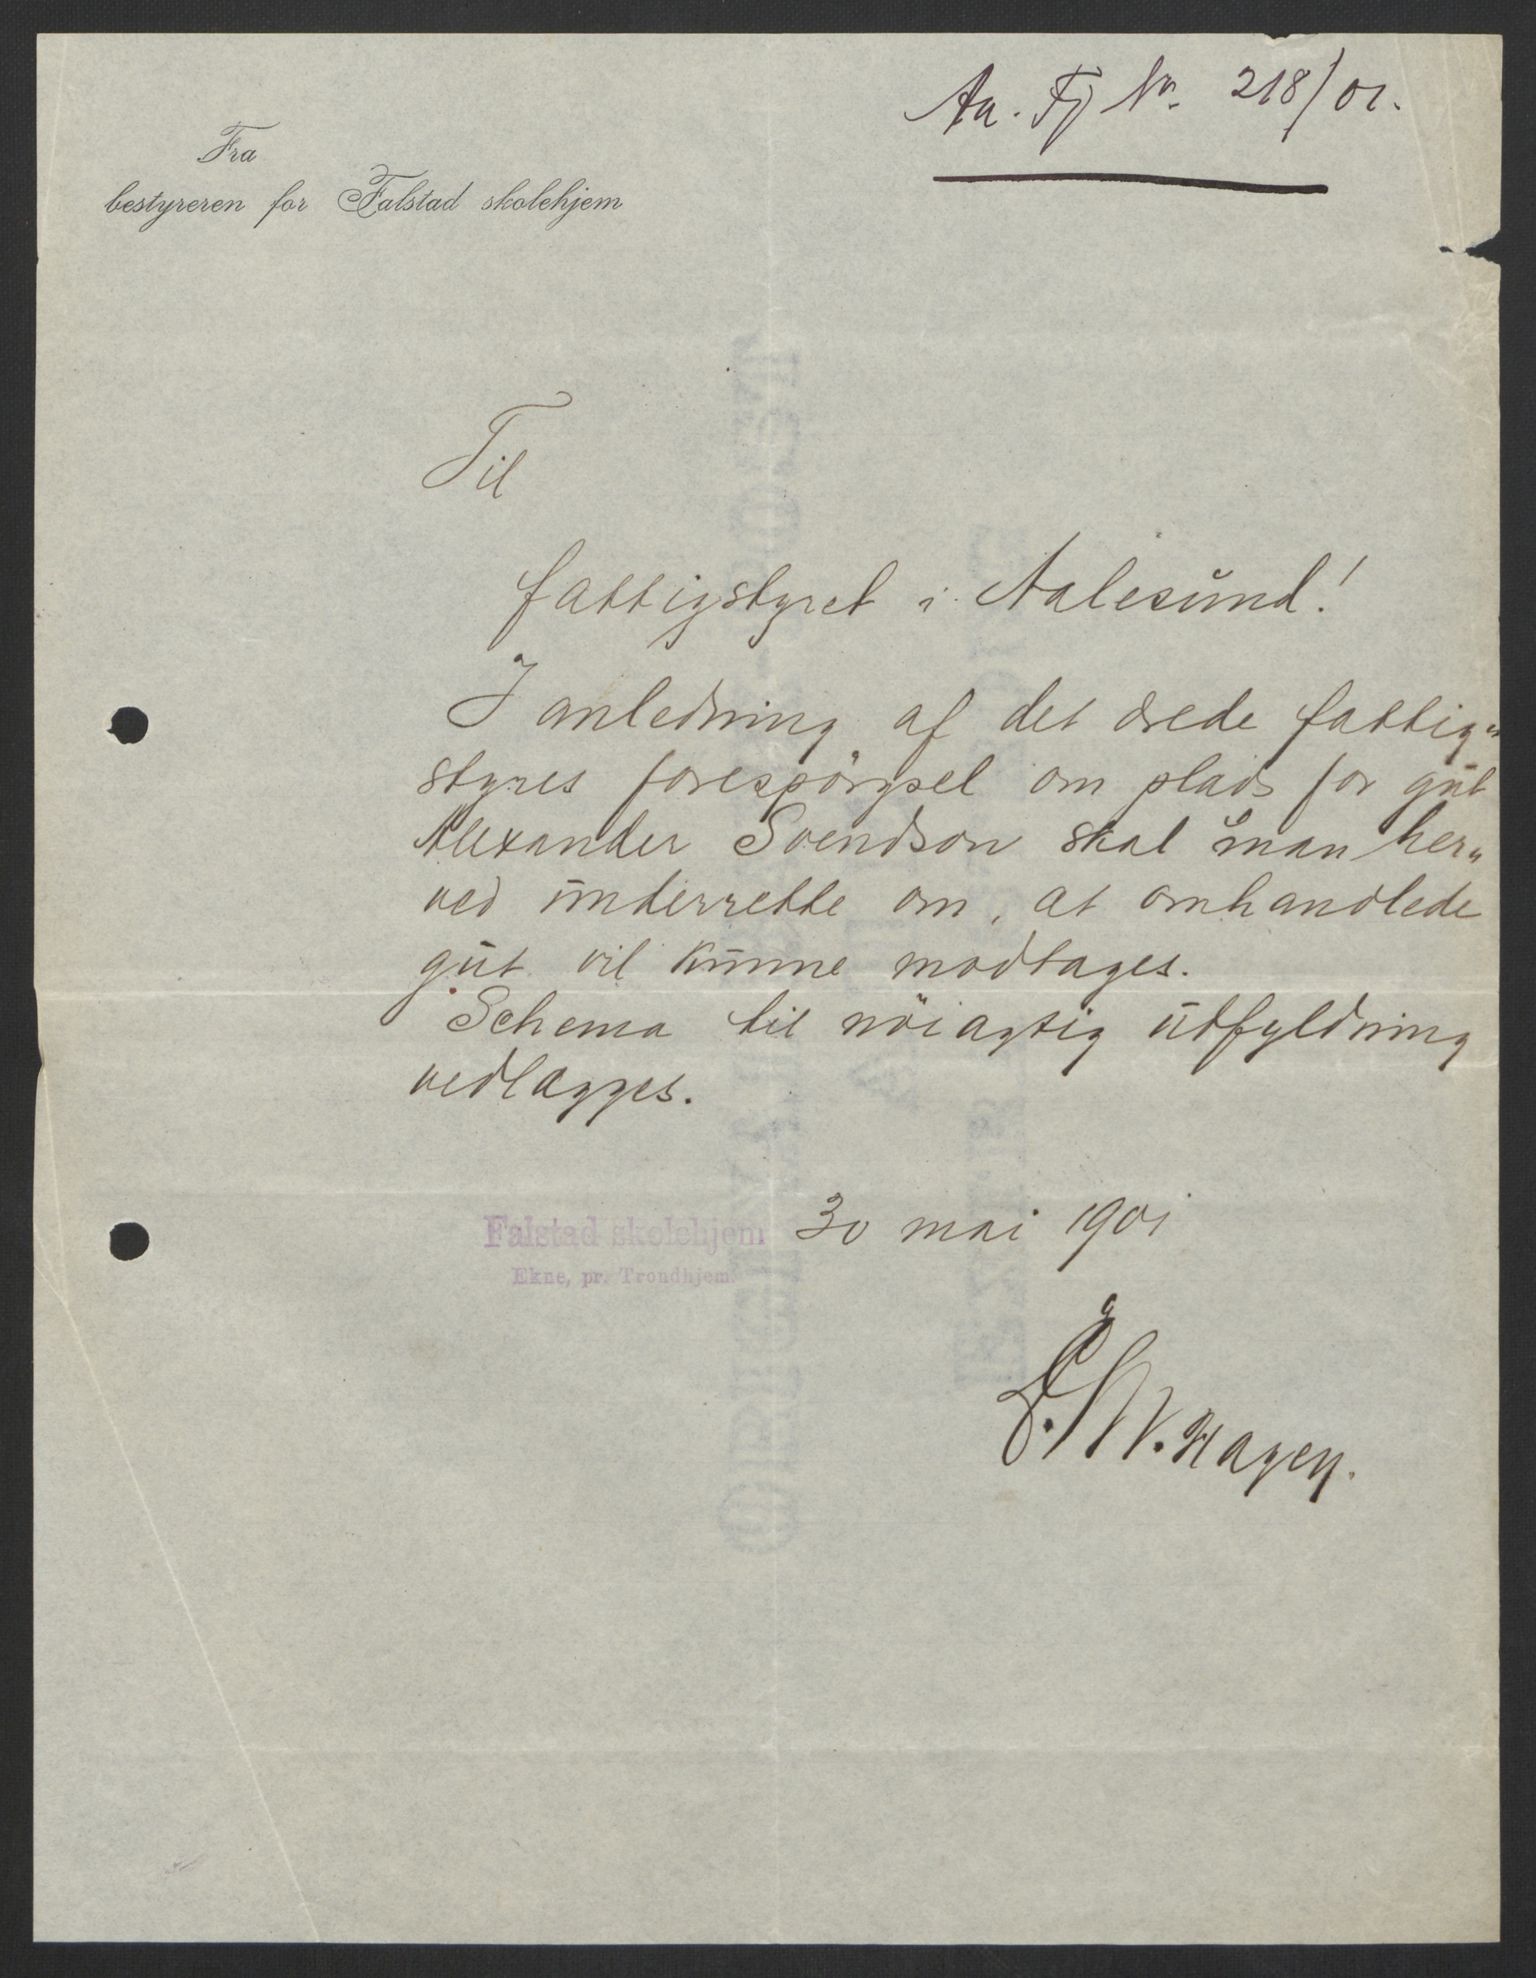 Aa. Fj No. 218/01.
Fra
bestyreren for Falstad skolehjem
Til
fattigstyret i Aalesund!
I anledning af det ærede fattig-
styres forespörgsel om plads for gut
Alexander Svendson skal man her-
ved underrette om, at omhandlede
gut vil kunne modtages.
Schema til nöiagtig udfyldning
vedlægges.
Falstad skolehjem 30 mai 1901
Ekne, pr. Trondhjem.
Hagen.